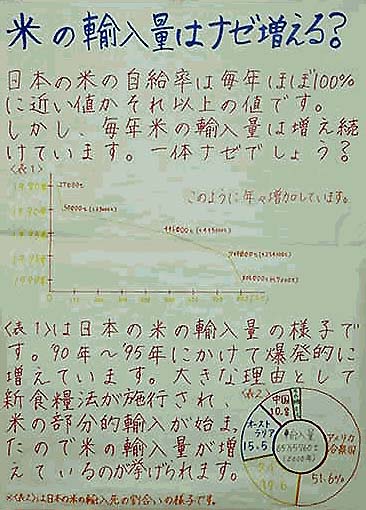 米の輸入量はナゼ増える?
日本の米の自給率は毎年ほぼ100%
に近い値かそれ以上の値です。
しかし、毎年米の輸入量は増え続
けています。一体ナゼでしょう?
〈表1〉
このように年々増加しています。
〈表1〉は日本の米の輸入量の様子で
す。'90年~'95年にかけて爆発的に
増えています。大きな理由として
新食糧法が施行され、
米の部分的輸入が始ま
たので米の輸入量が増
えているのが挙げられます。
〈表2〉
中国
10.8
オースト
ラリア
15.5
タイ
19.6
アメリカ
合衆国
51.6%
輸入量
(2000年)
※〈表2〉は日本の米の輸入元の割合いの様子です。